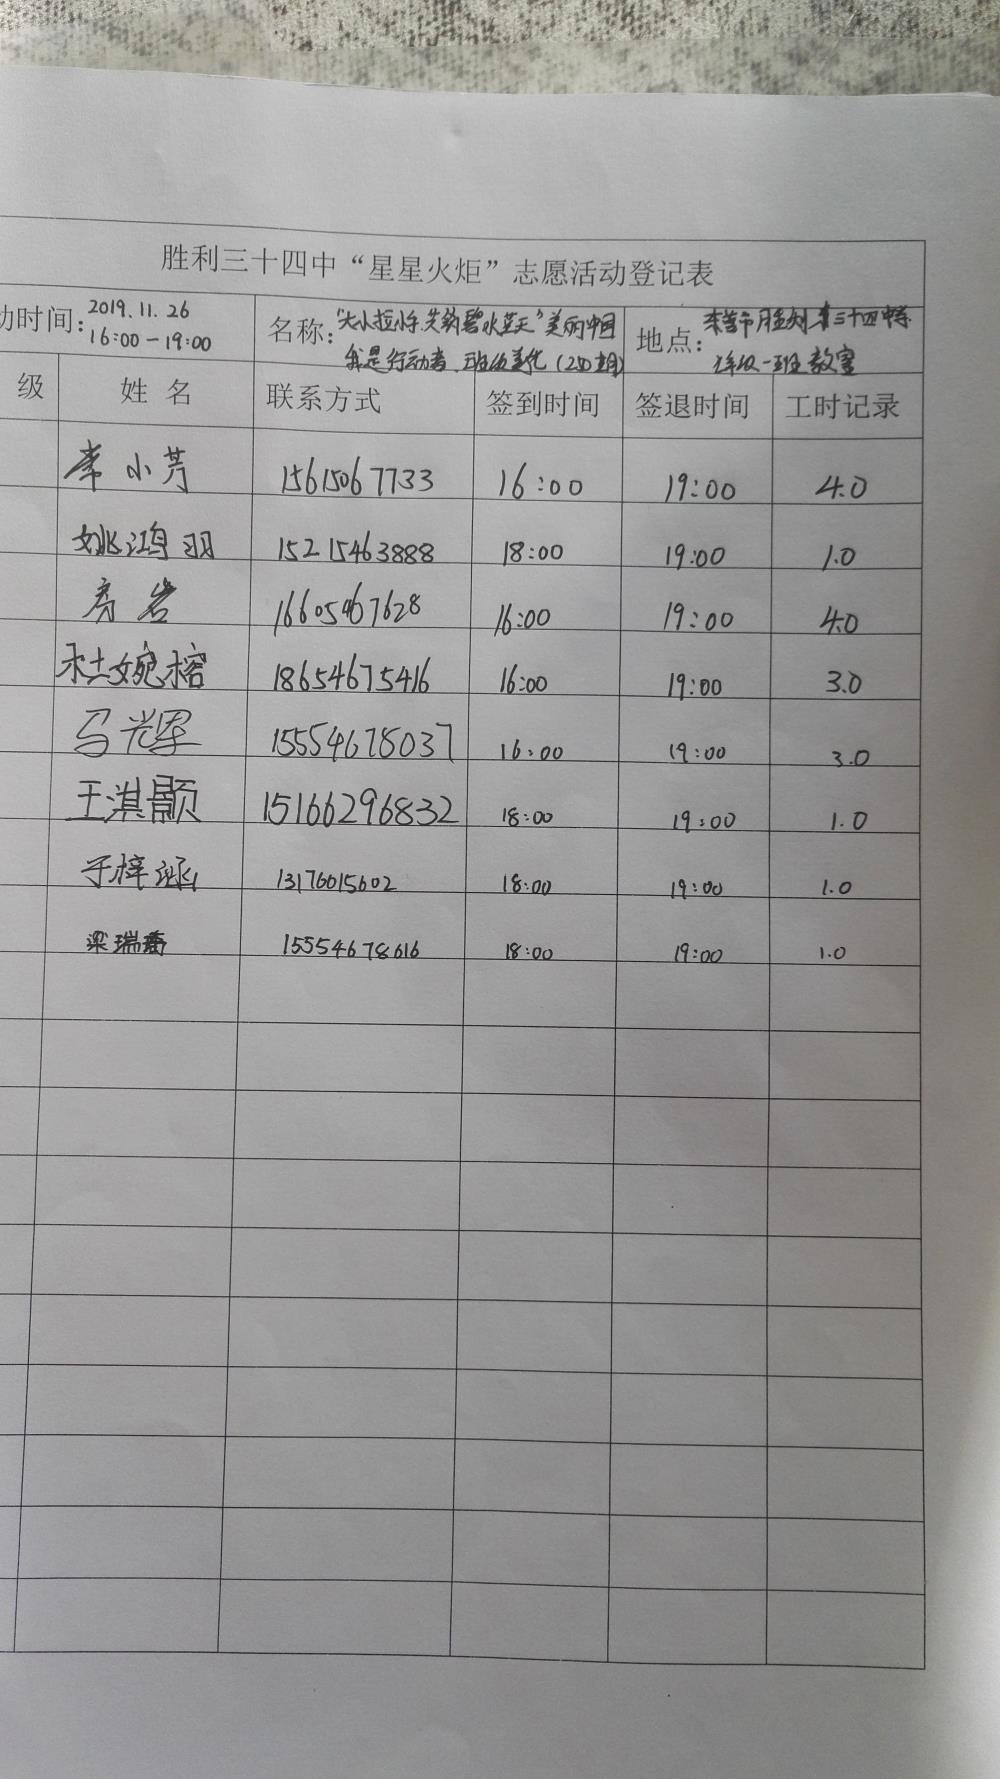 胜利三十四中“星星火炬”志愿活动登记表
动时间: 2019.11.26 16:00-19:00 名称: “大小拉小手 共筑碧水蓝天”美丽中国 我是行动者、班级美化(240期) 地点: 三十四中 年级一班教室
级 姓名 联系方式 签到时间 签退时间 工时记录
常小芳 15615067733 16:00 19:00 4.0
姚鸿羽 15215463888 18:00 19:00 1.0
房岩 16605467628 16:00 19:00 4.0
杜婉榕 18654675416 16:00 19:00 3.0
马光耀 15554678037 16:00 19:00 3.0
王淇颢 15166296832 18:00 19:00 1.0
于梓涵 13176015602 18:00 19:00 1.0
梁瑞 15554678616 18:00 19:00 1.0